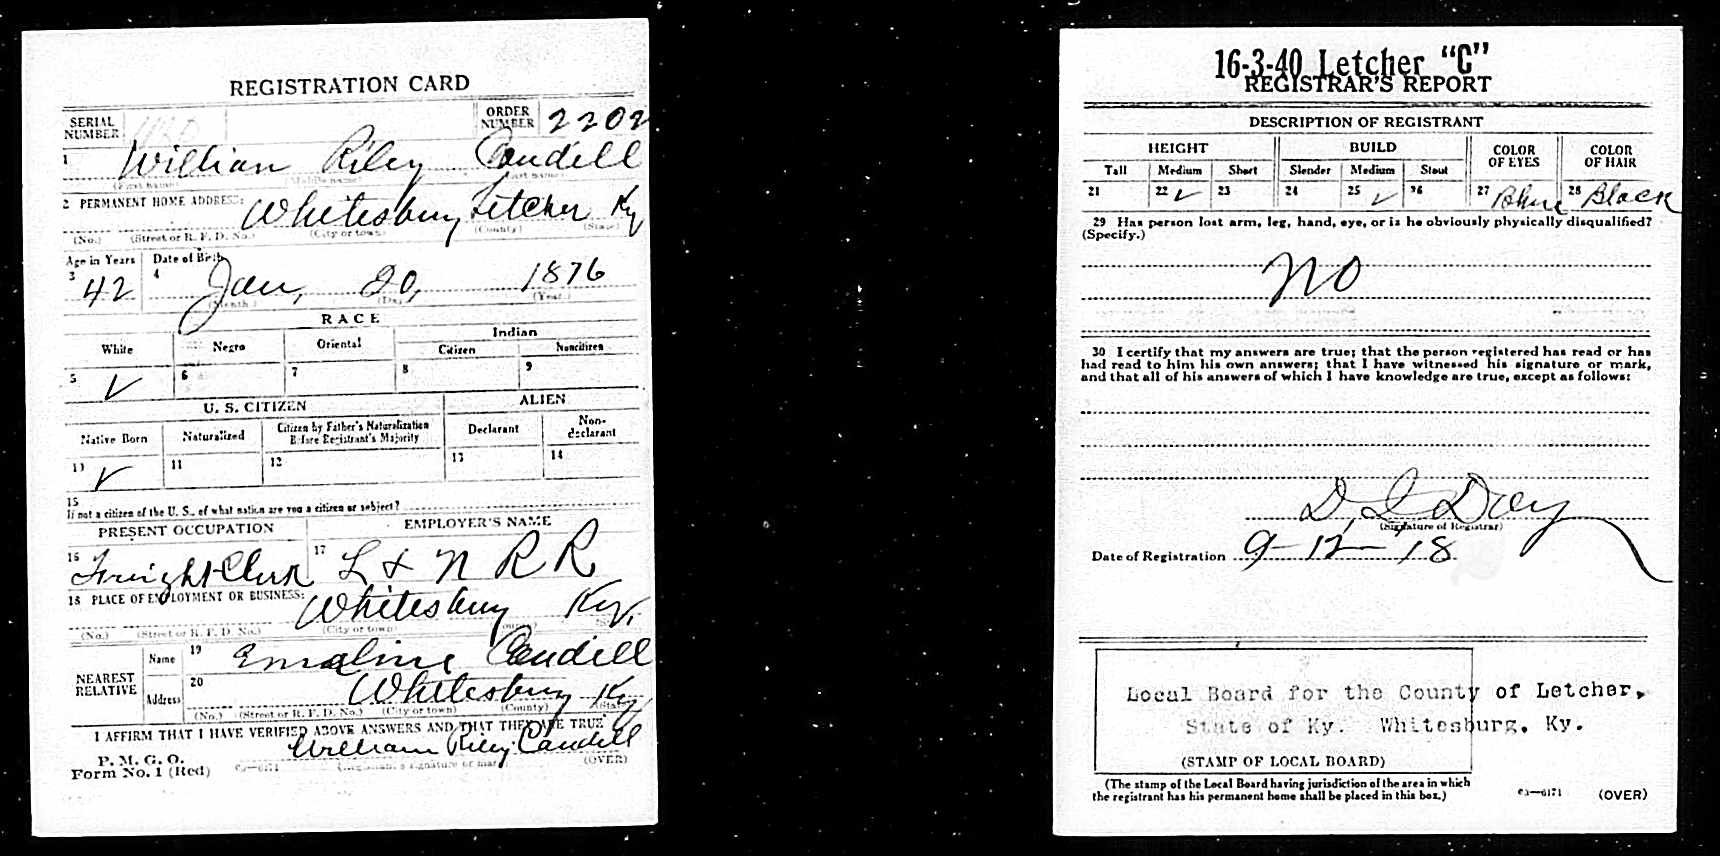 REGISTRATION CARD
SERIAL NUMBER
ORDER NUMBER 2202
1 William Riley Caudill
(First name) (Middle name) (Last name)
2 PERMANENT HOME ADDRESS: Whitesburg Letcher Ky
(No.) (Street or R. F. D. No.) (City or town) (County) (State)
Age in Years Date of Birth
3 42 4 Jan, 20, 1876
(Month.) (Day) (Year.)
RACE
White Negro Oriental Indian
Citizen Noncitizen
5 ✓ 6 7 8 9
U. S. CITIZEN ALIEN
Native Born Naturalized Citizen by Father's Naturalization Before Registrant's Majority Declarant Non-declarant
10 ✓ 11 12 13 14
15
If not a citizen of the U. S., of what nation are you a citizen or subject?
PRESENT OCCUPATION EMPLOYER'S NAME
16 Freight Clerk 17 L & N R R
18 PLACE OF EMPLOYMENT OR BUSINESS: Whitesburg Ky,
(No.) (Street or R. F. D. No.) (City or town) (County) (State)
NEAREST RELATIVE Name 19 Emaline Caudill
Address 20 Whitesburg Ky
(No.) (Street or R. F. D. No.) (City or town) (County) (State)
I AFFIRM THAT I HAVE VERIFIED ABOVE ANSWERS AND THAT THEY ARE TRUE
P. M. G. O.
Form No. 1 (Red) 03—6171 William Riley Caudill
(Registrant's signature or mark) (OVER)
16-3-40 Letcher "C"
REGISTRAR'S REPORT
DESCRIPTION OF REGISTRANT
HEIGHT BUILD COLOR OF EYES COLOR OF HAIR
Tall Medium Short Slender Medium Stout
21 22 ✓ 23 24 25 ✓ 26 27 Blue 28 Black
29 Has person lost arm, leg, hand, eye, or is he obviously physically disqualified?
(Specify.)
No
30 I certify that my answers are true; that the person registered has read or has
had read to him his own answers; that I have witnessed his signature or mark,
and that all of his answers of which I have knowledge are true, except as follows:
D, I Day
(Signature of Registrar)
Date of Registration 9-12-18
Local Board for the County of Letcher,
State of Ky. Whitesburg, Ky.
(STAMP OF LOCAL BOARD)
(The stamp of the Local Board having jurisdiction of the area in which
the registrant has his permanent home shall be placed in this box.)
03—6171 (OVER)